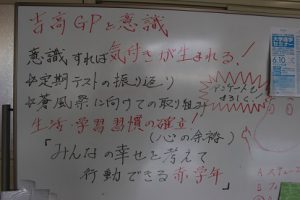 吉高GPと意識
意識すれば気付きが生まれる!
☆定期テストの振り返り
☆蒼風祭に向けての取り組み
アンケートも
生活・学習習慣の確立!
(心の余裕)
「みんなの幸せを考えて
行動できる赤学年
6.10